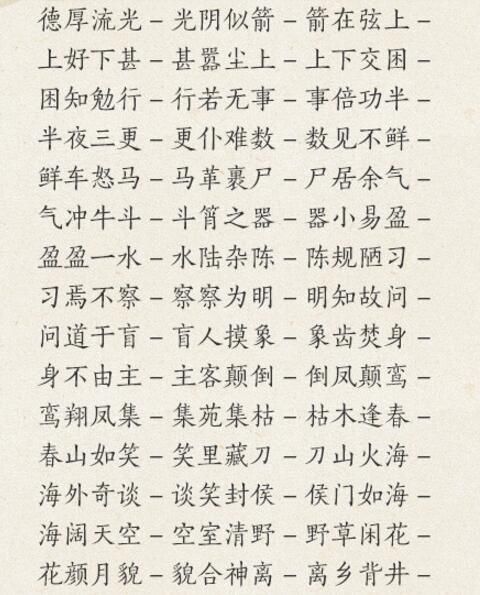 德厚流光 – 光阴似箭 – 箭在弦上 –
上好下甚 – 甚嚣尘上 – 上下交困 –
困知勉行 – 行若无事 – 事倍功半 –
半夜三更 – 更仆难数 – 数见不鲜 –
鲜车怒马 – 马革裹尸 – 尸居余气 –
气冲牛斗 – 斗筲之器 – 器小易盈 –
盈盈一水 – 水陆杂陈 – 陈规陋习 –
习焉不察 – 察察为明 – 明知故问 –
问道于盲 – 盲人摸象 – 象齿焚身 –
身不由主 – 主客颠倒 – 倒凤颠鸾 –
鸾翔凤集 – 集苑集枯 – 枯木逢春 –
春山如笑 – 笑里藏刀 – 刀山火海 –
海外奇谈 – 谈笑封侯 – 侯门如海 –
海阔天空 – 空室清野 – 野草闲花 –
花颜月貌 – 貌合神离 – 离乡背井 –